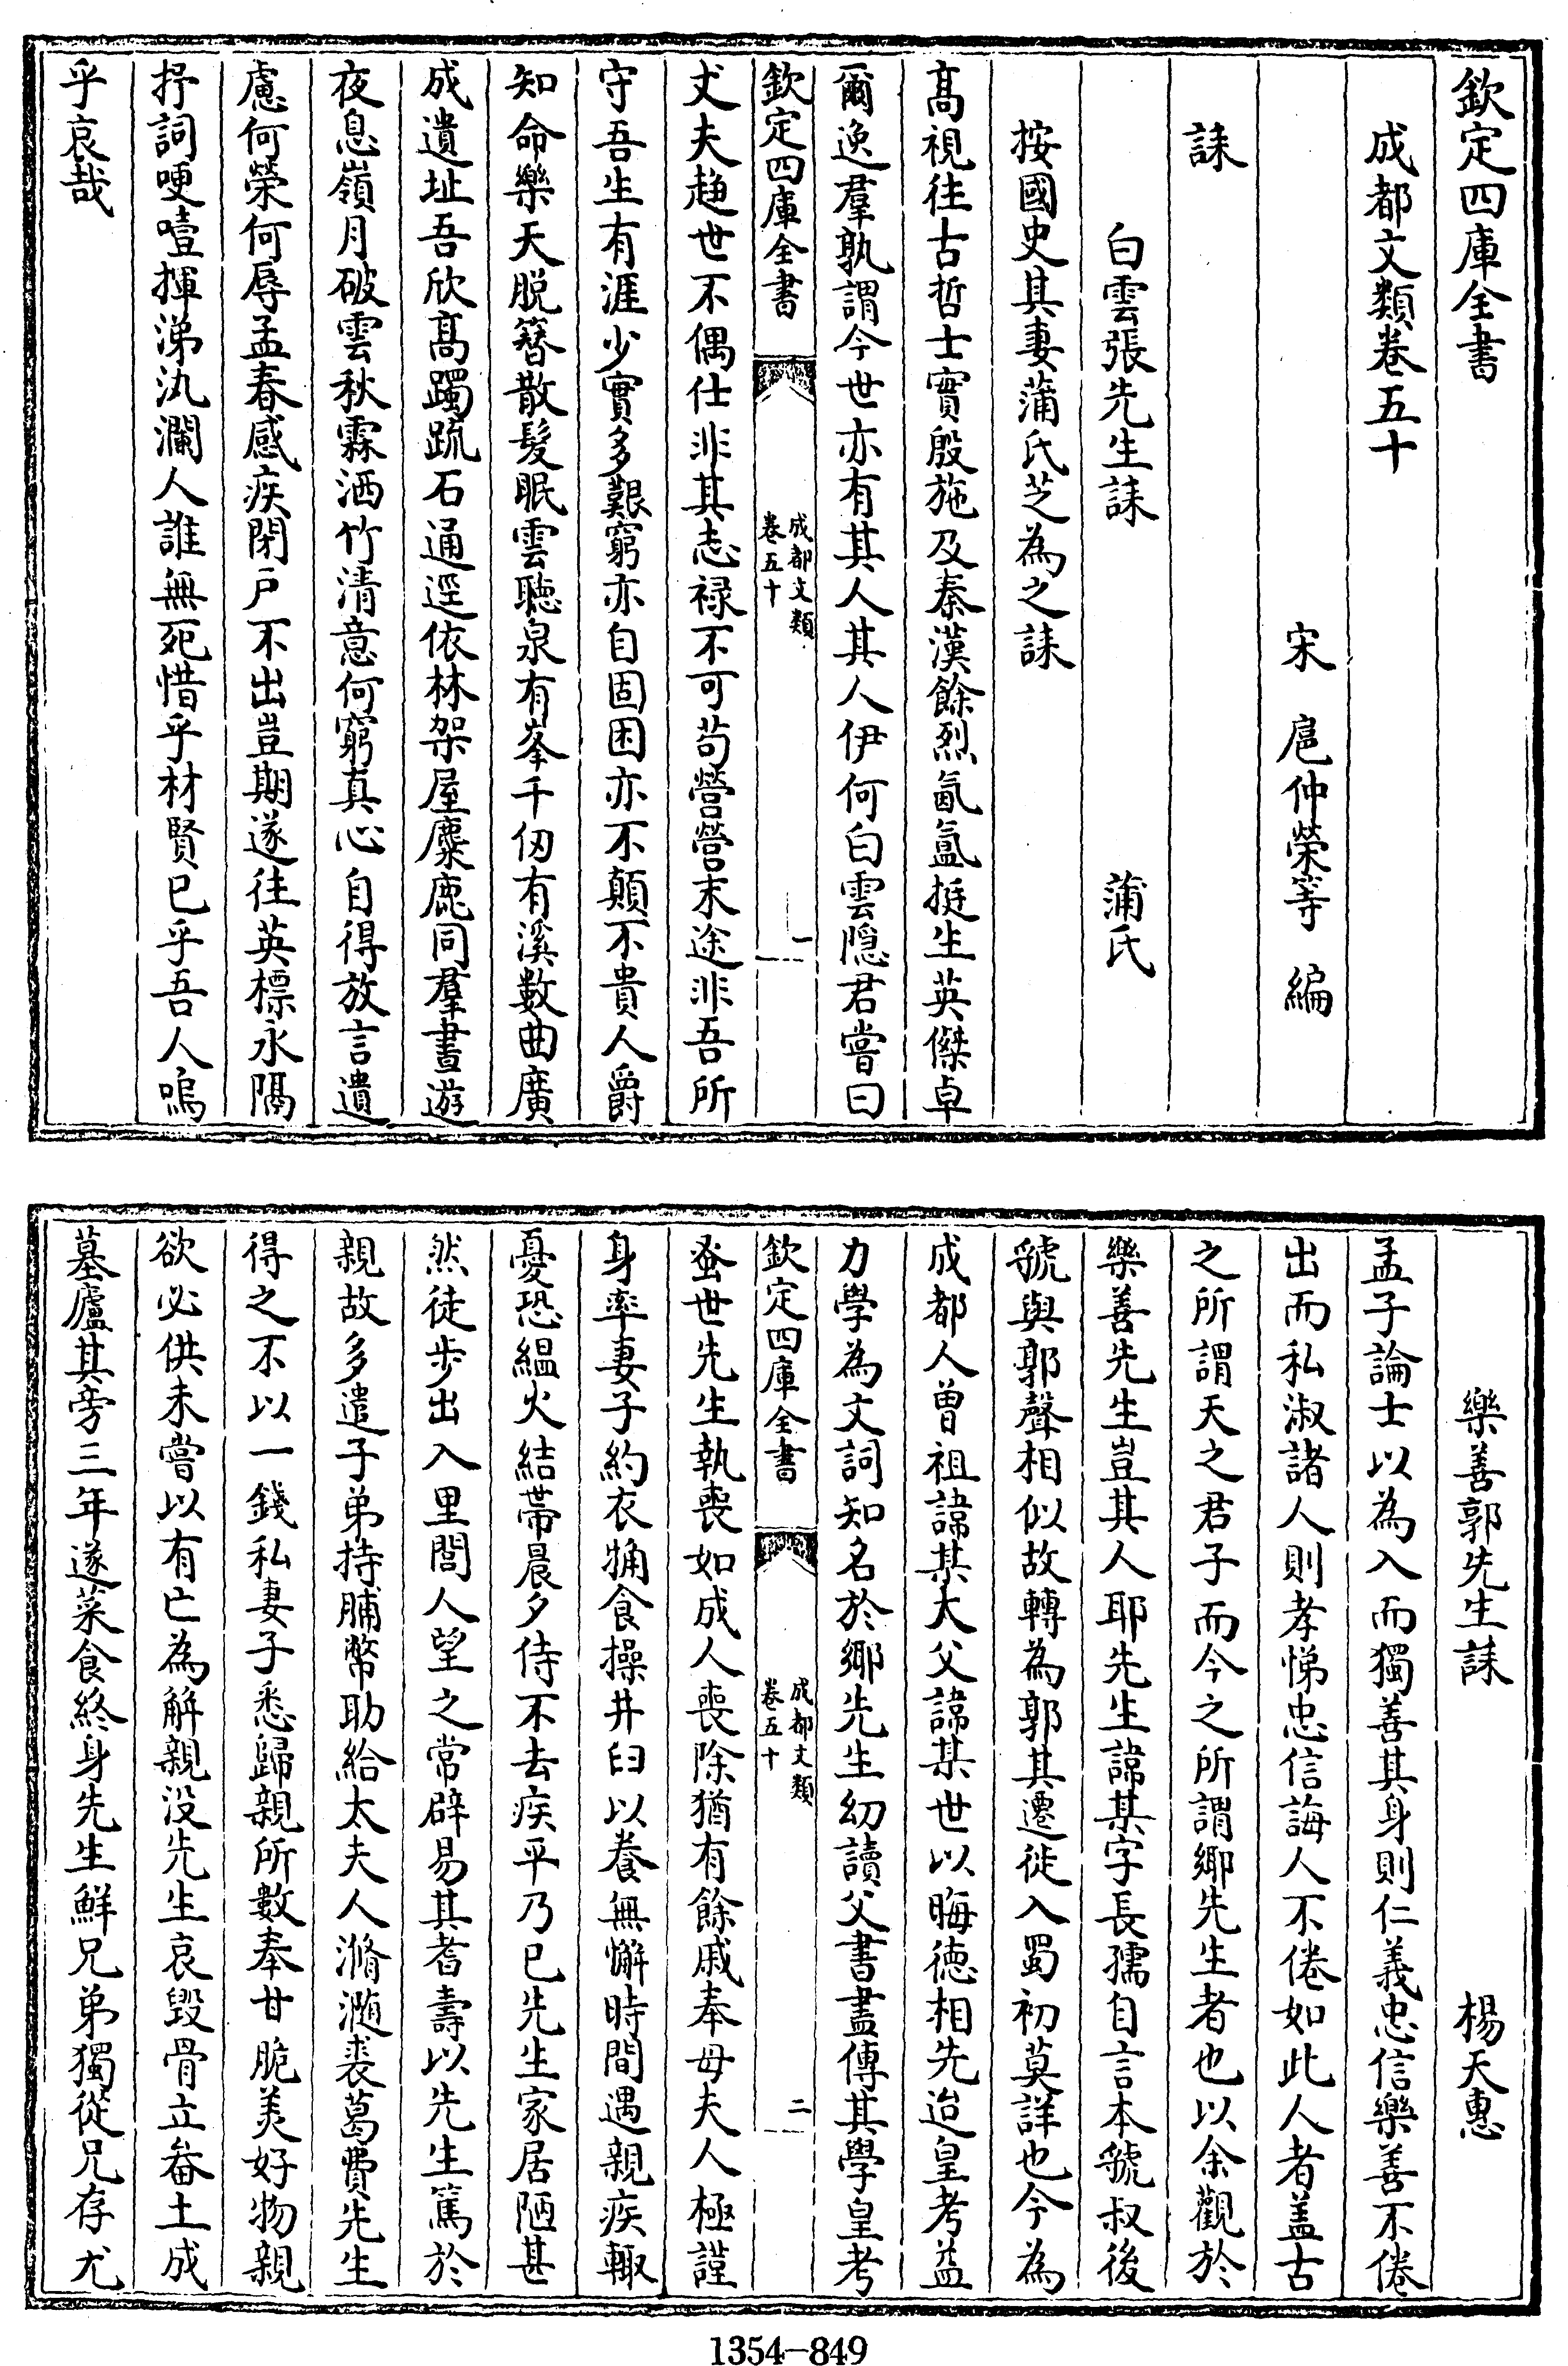 欽定四庫全書
成都文類卷五十
宋 扈仲榮等 編
誄
白雲張先生誄 蒲氏
按國史其妻蒲氏芝為之誄
髙視往古哲士實殷施及秦漢餘烈氤氳挺生英傑卓
爾逸羣孰謂今世亦有其人其人伊何白雲隠君嘗曰
欽定四庫全書
成都文類
卷五十
一
丈夫趋世不偶仕非其志禄不可苟營營末途非吾所
守吾生有涯少實多艱窮亦自固困亦不顛不貴人爵
知命樂天脱簪散髮眠雲聽泉有峯千仞有溪數曲廣
成遺址吾欣髙躅疏石通逕依林架屋麋鹿同羣晝遊
夜息嶺月破雲秋霖洒竹清意何窮真心自得放言遺
慮何榮何辱孟春感疾閉戸不出豈期遂往英標永隔
抒詞哽噎揮涕汍瀾人誰無死惜乎材賢已乎吾人嗚
乎哀哉
樂善郭先生誄 楊天惠
孟子論士以為入而獨善其身則仁義忠信樂善不倦
出而私淑諸人則孝悌忠信誨人不倦如此人者盖古
之所謂天之君子而今之所謂鄉先生者也以余觀於
樂善先生豈其人耶先生諱某字長孺自言本虢叔後
虢與郭聲相似故轉為郭其遷徙入蜀初莫詳也今為
成都人曽祖諱某大父諱某世以晦徳相先迨皇考益
力學為文詞知名於鄉先生幼讀父書盡傳其學皇考
欽定四庫全書
成都文類
卷五十
二
蚤世先生執喪如成人喪除猶有餘戚奉母夫人極謹
身率妻子約衣觕食操井臼以養無懈時間遇親疾輙
憂恐緼火結帶晨夕侍不去疾平乃已先生家居陋甚
然徒步出入里閭人望之常辟易其耆壽以先生篤於
親故多遣子弟持脯幣助給太夫人滫瀡裘葛費先生
得之不以一錢私妻子悉歸親所數奉甘脆美好物親
欲必供未嘗以有亡為解親没先生哀毁骨立畚土成
墓廬其旁三年遂菜食終身先生鮮兄弟獨從兄存尤
1354—849